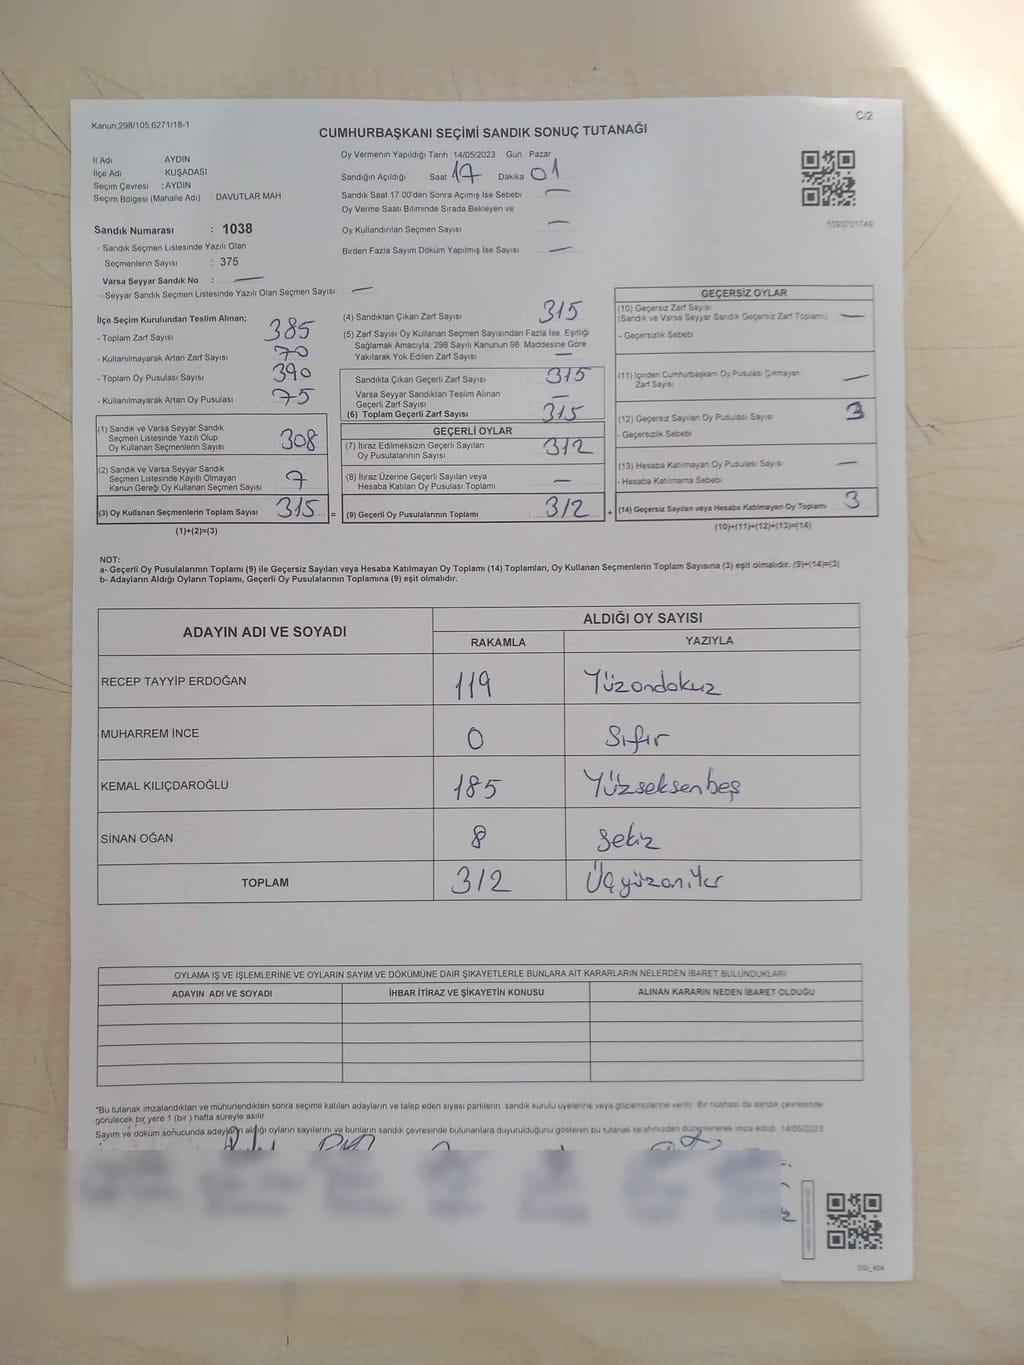 Kanun:298/105,6271/18-1
C/2
CUMHURBAŞKANI SEÇİMİ SANDIK SONUÇ TUTANAĞI
İl Adı AYDIN
İlçe Adı KUŞADASI
Seçim Çevresi : AYDIN
Seçim Bölgesi (Mahalle Adı) : DAVUTLAR MAH
Sandık Numarası : 1038
- Sandık Seçmen Listesinde Yazılı Olan
Seçmenlerin Sayısı : 375
Varsa Seyyar Sandık No : —
- Seyyar Sandık Seçmen Listesinde Yazılı Olan Seçmen Sayısı : —
Oy Vermenin Yapıldığı Tarih 14/05/2023 Gün Pazar
Sandığın Açıldığı Saat 17 Dakika 01
Sandık Saat 17:00'den Sonra Açımış İse Sebebi : —
Oy Verme Saati Bitiminde Sırada Bekleyen ve
Oy Kullandırılan Seçmen Sayısı : —
Birden Fazla Sayım Döküm Yapılmış İse Sayısı : —
1093701749
İlçe Seçim Kurulundan Teslim Alınan;
- Toplam Zarf Sayısı : 385
- Kullanılmayarak Artan Zarf Sayısı : 70
- Toplam Oy Pusulası Sayısı : 390
- Kullanılmayarak Artan Oy Pusulası : 75
(1) Sandık ve Varsa Seyyar Sandık
Seçmen Listesinde Yazılı Olup
Oy Kullanan Seçmenlerin Sayısı : 308
(2) Sandık ve Varsa Seyyar Sandık
Seçmen Listesinde Kayıtlı Olmayan
Kanun Gereği Oy Kullanan Seçmen Sayısı : 7
(3) Oy Kullanan Seçmenlerin Toplam Sayısı : 315 =
(1)+(2)=(3)
(4) Sandıktan Çıkan Zarf Sayısı : 315
(5) Zarf Sayısı Oy Kullanan Seçmen Sayısından Fazla İse, Eşitliği
Sağlamak Amacıyla, 298 Sayılı Kanunun 98. Maddesine Göre
Yakılarak Yok Edilen Zarf Sayısı : —
Sandıkta Çıkan Geçerli Zarf Sayısı : 315
Varsa Seyyar Sandıktan Teslim Alınan
Geçerli Zarf Sayısı : —
(6) Toplam Geçerli Zarf Sayısı : 315
GEÇERLİ OYLAR
(7) İtiraz Edilmeksizin Geçerli Sayılan
Oy Pusulalarının Sayısı : 312
(8) İtiraz Üzerine Geçerli Sayılan veya
Hesaba Katılan Oy Pusulası Toplamı : —
(9) Geçerli Oy Pusulalarının Toplamı : 312 +
GEÇERSİZ OYLAR
(10) Geçersiz Zarf Sayısı
(Sandık ve Varsa Seyyar Sandık Geçersiz Zarf Toplamı) : —
- Geçersizlik Sebebi
(11) İçinden Cumhurbaşkanı Oy Pusulası Çıkmayan
Zarf Sayısı : —
(12) Geçersiz Sayılan Oy Pusulası Sayısı : 3
- Geçersizlik Sebebi
(13) Hesaba Katılmayan Oy Pusulası Sayısı : —
- Hesaba Katılmama Sebebi
(14) Geçersiz Sayılan veya Hesaba Katılmayan Oy Toplamı : 3
(10)+(11)+(12)+(13)=(14)
NOT:
a- Geçerli Oy Pusulalarının Toplamı (9) ile Geçersiz Sayılan veya Hesaba Katılmayan Oy Toplamı (14) Toplamları, Oy Kullanan Seçmenlerin Toplam Sayısına (3) eşit olmalıdır. (9)+(14)=(3)
b- Adayların Aldığı Oyların Toplamı, Geçerli Oy Pusulalarının Toplamına (9) eşit olmalıdır.
ADAYIN ADI VE SOYADI
ALDIĞI OY SAYISI
RAKAMLA YAZIYLA
RECEP TAYYİP ERDOĞAN 119 Yüzondokuz
MUHARREM İNCE 0 Sıfır
KEMAL KILIÇDAROĞLU 185 Yüzseksenbeş
SİNAN OĞAN 8 Sekiz
TOPLAM 312 Üçyüzoniki
OYLAMA İŞ VE İŞLEMLERİNE VE OYLARIN SAYIM VE DÖKÜMÜNE DAİR ŞİKAYETLERLE BUNLARA AİT KARARLARIN NELERDEN İBARET BULUNDUKLARI
ADAYIN ADI VE SOYADI İHBAR İTİRAZ VE ŞİKAYETİN KONUSU ALINAN KARARIN NEDEN İBARET OLDUĞU
*Bu tutanak imzalandıktan ve mühürlendikten sonra seçime katılan adayların ve talep eden siyasi partilerin sandık kurulu üyelerine veya gözlemcilerine verilir. Bir nüshası da sandık çevresinde
görülecek bir yere 1 (bir ) hafta süreyle asılır
Sayım ve döküm sonucunda adayların aldığı oyların sayılarını ve bunların sandık çevresinde bulunanlara duyurulduğunu gösteren bu tutanak tarafımızdan düzenlenerek imza edildi. 14/05/2023